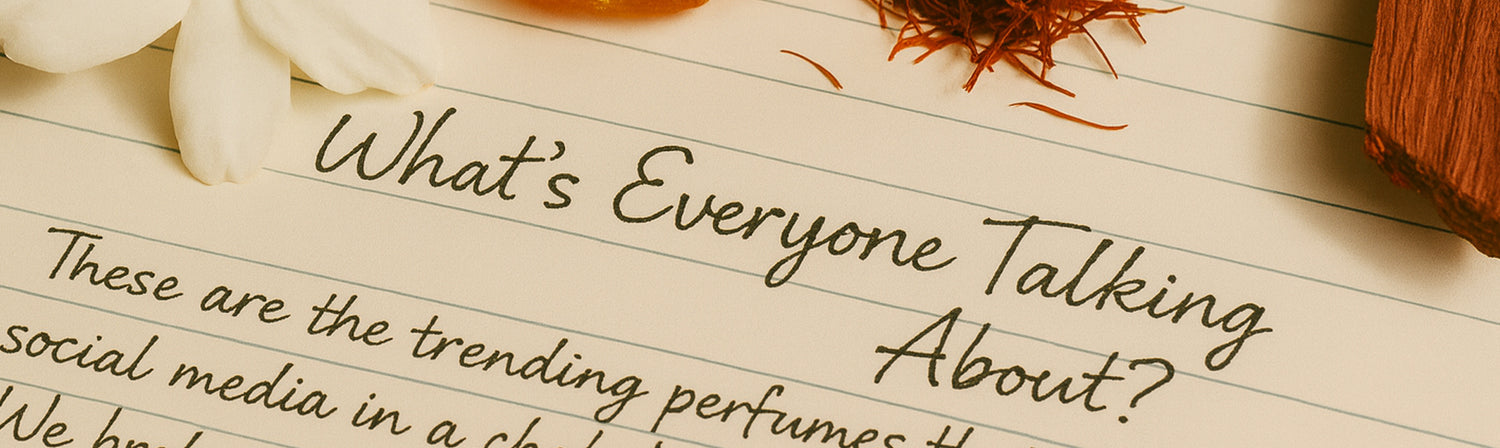 What's Everyone Talking
About?
These are the trending perfumes
social media in a
We